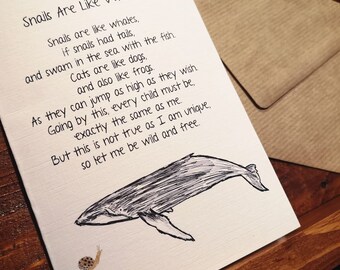 Snails Are Like
Snails are like whales,
if snails had tails,
and swam in the sea with the fish.
Cats are like dogs,
and also like frogs
As they can jump as high as they wish.
Going by this, every child must be,
exactly the same as me.
But this is not true as I am unique,
so let me be wild and free.